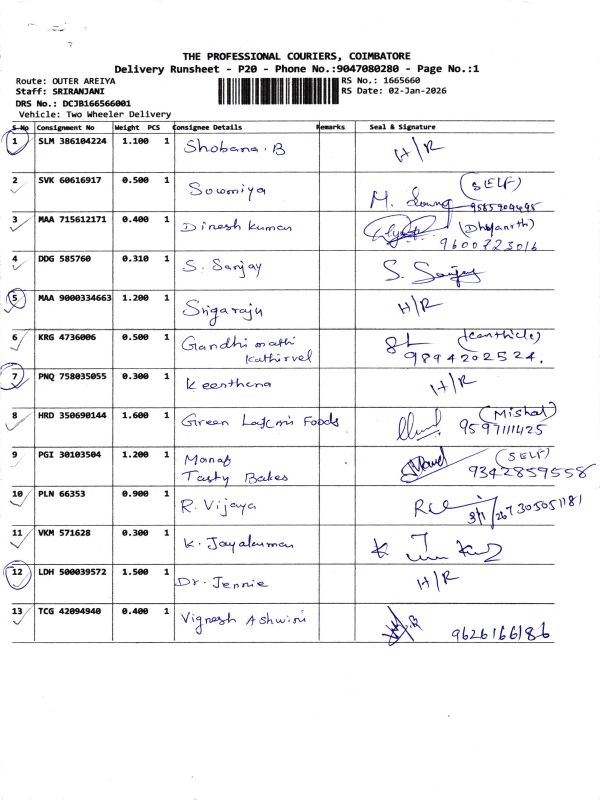 THE PROFESSIONAL COURIERS, COIMBATORE
Delivery Runsheet - P20 - Phone No.:9047080280 - Page No.:1
Route: OUTER AREIYA RS No.: 1665660
Staff: SRIRANJANI RS Date: 02-Jan-2026
DRS No.: DCJB166566001
Vehicle: Two Wheeler Delivery
S No Consignment No Weight PCS Consignee Details Remarks Seal & Signature
1 SLM 386104224 1.100 1 Shobana. B H/R
2 SVK 60616917 0.500 1 Sowmiya M. (SELF)
9585909495
3 MAA 715612171 0.400 1 Dinesh kumar
9600723016
4 DDG 585760 0.310 1 S. Sanjay S. Sanjay
5 MAA 9000334663 1.200 1 H/R
6 KRG 4736006 0.500 1 Gandhi mathi
Kathirvel 9894202524.
7 PNQ 758035055 0.300 1 Keerthena H/R
8 HRD 350690144 1.600 1 Green Foods (Mishal)
9597111425
9 PGI 30103504 1.200 1 (SELF)
Tasty Bakes 9342859558
10 PLN 66353 0.900 1 R. Vijaya 7305051181
11 VKM 571628 0.300 1 K. Jayakumar K
12 LDH 500039572 1.500 1 Dr. Jennie H/R
13 TCG 42094940 0.400 1 Vignesh Ashwini 9626166186